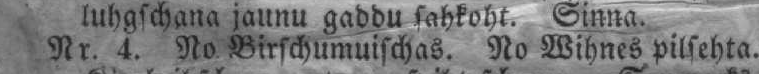 luhgſchana jaunu gaddu ſahkoht. Sinna.
Nr. 4. No Birſchumuiſchas. No Wihnes pilſehta.